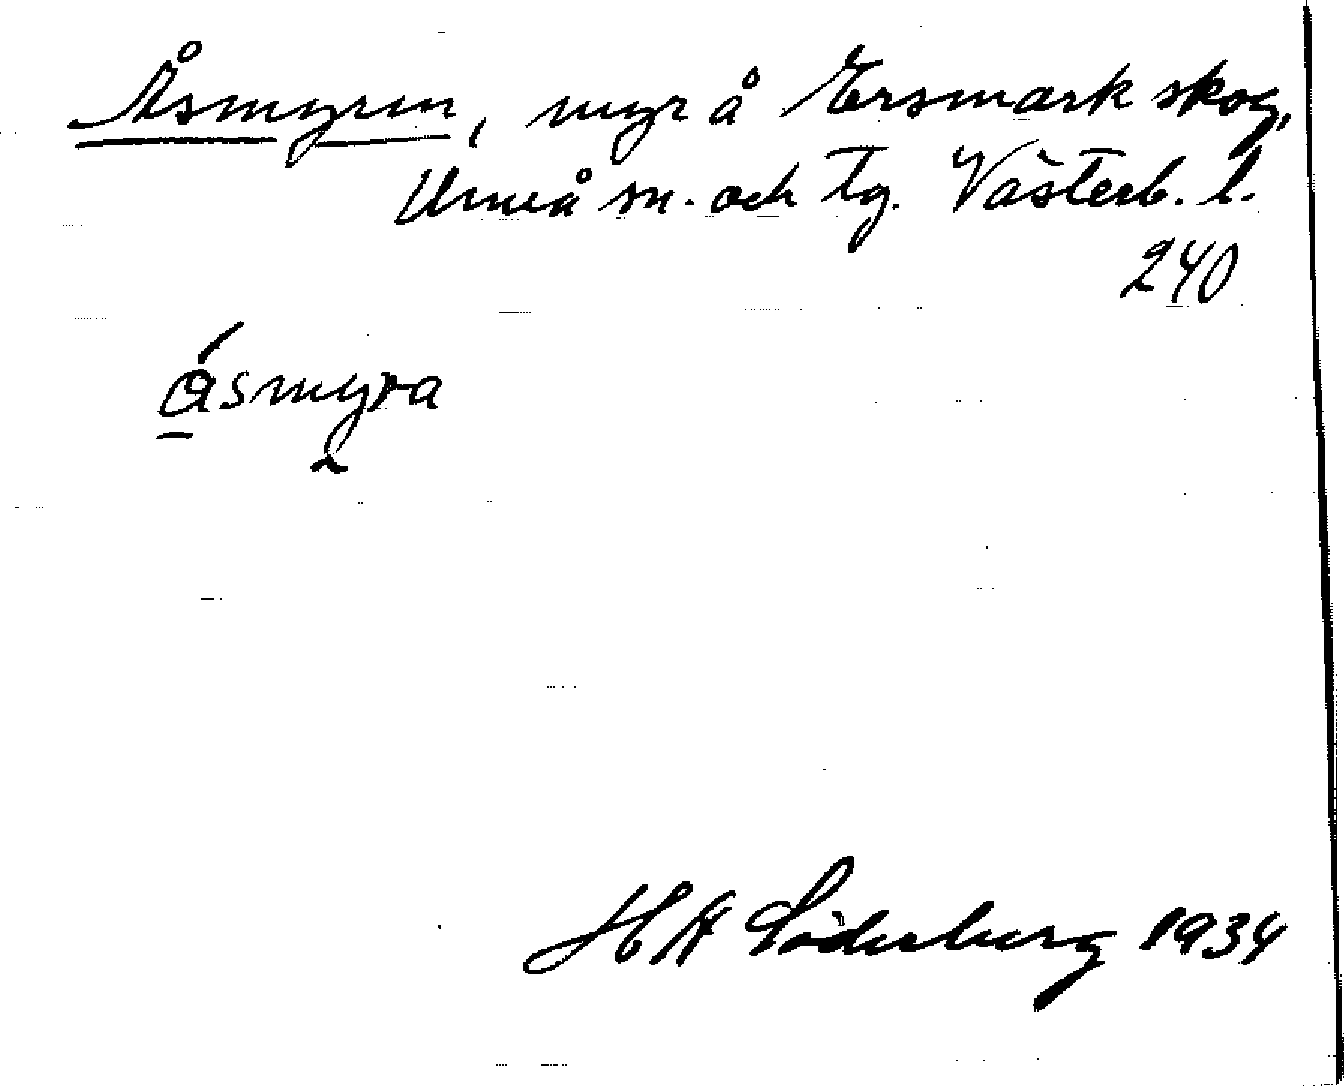 Åsmyren, myr å Ersmark skog,
Umeå sn. och tg. Västerb. l.
240
åsmyra
H A Söderberg 1934